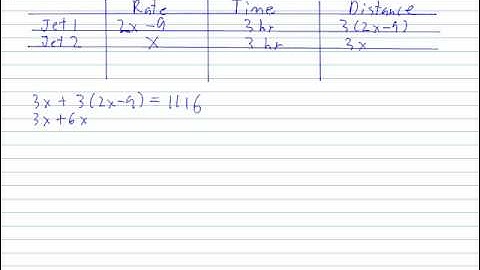 Rate Time Distance
Jet 1 2x-9 3 hr 3(2x-9)
Jet 2 x 3 hr 3x
3x + 3(2x-9) = 1116
3x+6x